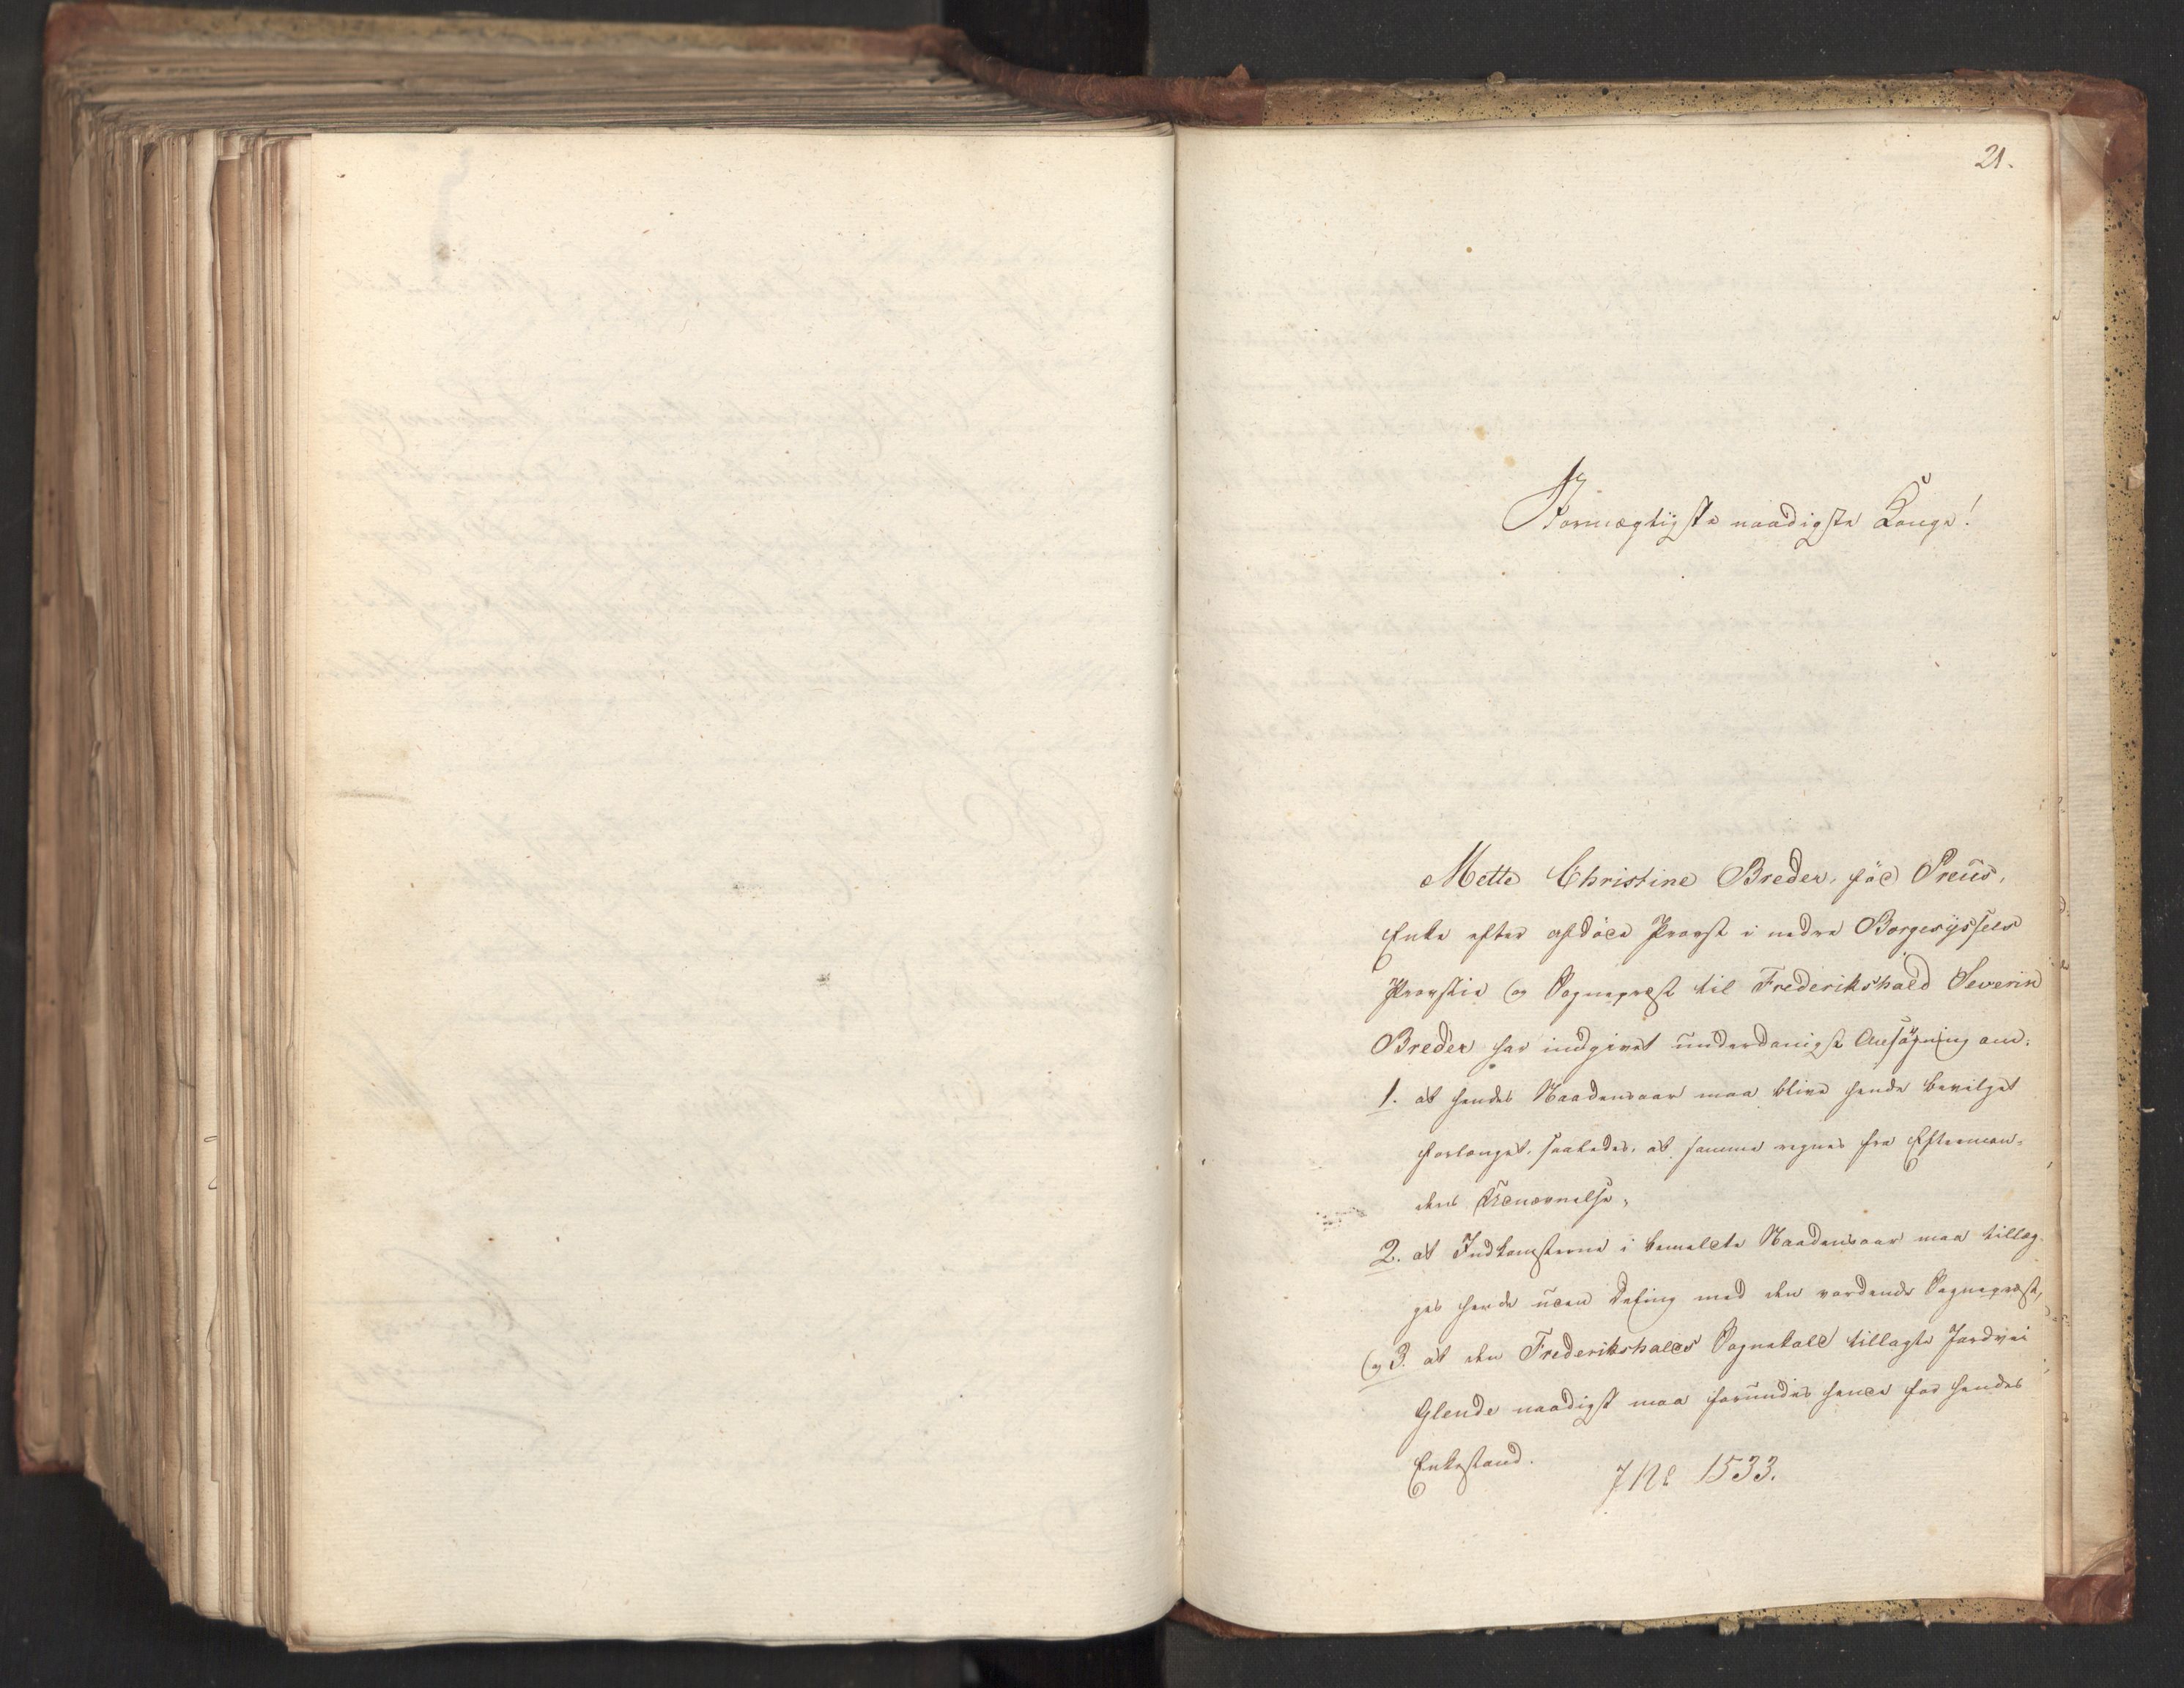 21.
Stormægtigste naadigste Konge!
Mette Christine Breder, föd Preüs,
Enke efter afdöde Provst i nedre Borgesÿssels
Provstie og Sognepræst til Frederikshald Severin
Breder har indgivet ünderdanigst Ansögning om:
1. at hendes Naadensaar maa blive hende bevilget
forlænget, saaledes, at samme regnes fra Efterman-
dens Udnævnelse,
2. at Indkomsterne i bemeldte Naadensaar maa tillæg-
ges hende üden Deling med den vordende Sognepræst,
og 3. at den Frederikshalds Sognekald tillagte Jordvei
Glende naadigst maa forundes hende for hendes
Enkestand.
J No 1533.